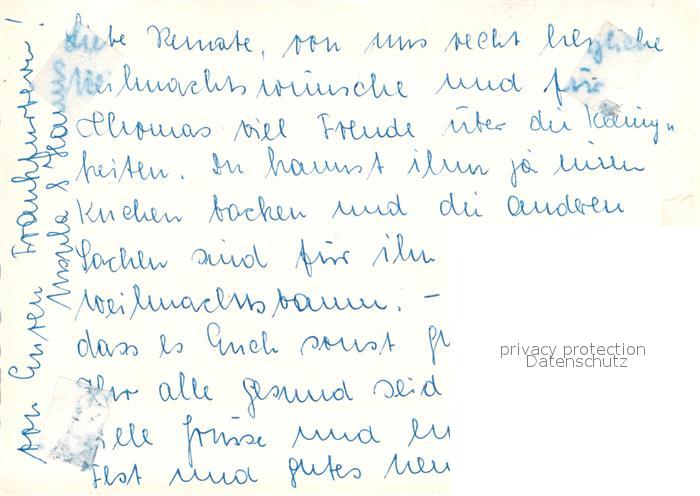 Liebe Renate, von uns recht herzliche
Weihnachtswünsche und für
Thomas viel Freude über die Kleinig-
keiten. Du kannst ihm ja einen
Kuchen backen und die anderen
Sachen sind für ihn
Weihnachtsbaum. –
dass es Euch sonst gu
Ihr alle gesund seid
Viele Grüsse und ein
Fest und gutes neu
von Euren Frankfurtern!
Ursula & Hans
privacy protection
Datenschutz